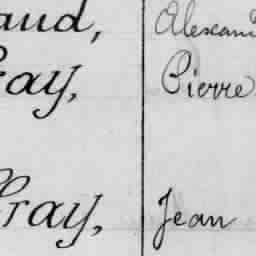 aud, Alexan
ay, Pierre
ray, Jean